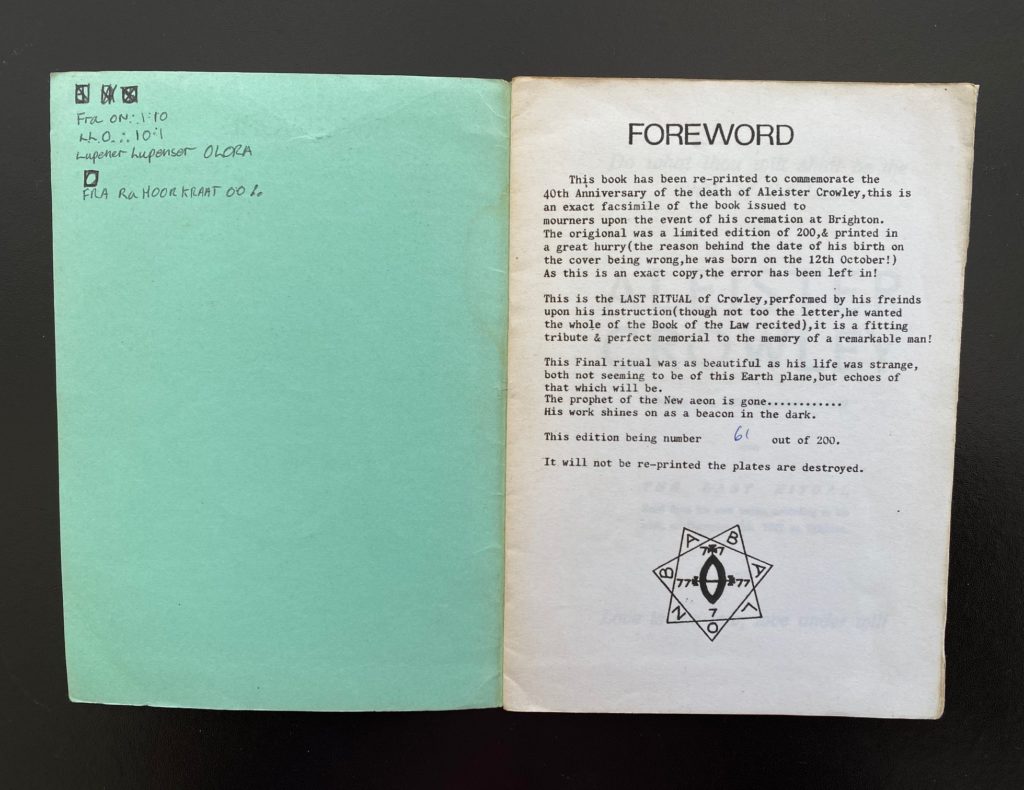 Fra ON∴ 1:10
H.O.∴ 10:1
Lupener Lupensor OLORA
FRA Ra HOOR KRAAT
FOREWORD
This book has been re-printed to commemorate the
40th Anniversary of the death of Aleister Crowley,this is
an exact facsimile of the book issued to
mourners upon the event of his cremation at Brighton.
The origional was a limited edition of 200,& printed in
a great hurry(the reason behind the date of his birth on
the cover being wrong,he was born on the 12th October!)
As this is an exact copy,the error has been left in!
This is the LAST RITUAL of Crowley,performed by his freinds
upon his instruction(though not too the letter,he wanted
the whole of the Book of the Law recited),it is a fitting
tribute & perfect memorial to the memory of a remarkable man!
This Final ritual was as beautiful as his life was strange,
both not seeming to be of this Earth plane,but echoes of
that which will be.
The prophet of the New aeon is gone............
His work shines on as a beacon in the dark.
This edition being number 61 out of 200.
It will not be re-printed the plates are destroyed.
B A B A L O N
7 7
77 77
7